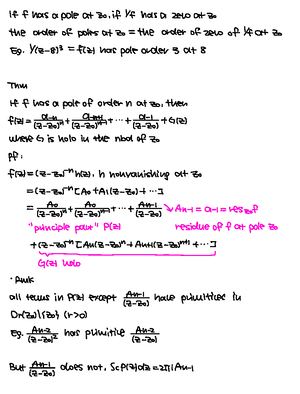 If f has a pole at z₀, if 1/f has a zero at z₀
the order of poles at z₀ = the order of zero of 1/f at z₀
Eg. 1/(z-8)³ = f(z) has pole order 3 at 8
Thm
If f has a pole of order n at z₀, then
f(z) = a-n/(z-z₀)ⁿ + a-n+1/(z-z₀)ⁿ⁻¹ + ... + a-1/(z-z₀) + G(z)
where G is holo in the nbd of z₀
pf:
f(z) = (z-z₀)⁻ⁿ h(z), h nonvanishing at z₀
= (z-z₀)⁻ⁿ [A₀ + A₁(z-z₀) + ...]
= A₀/(z-z₀)ⁿ + A₀/(z-z₀)ⁿ⁻¹ + ... + An-1/(z-z₀) → An-1 = a-1 = res z₀ f
"principle part" P(z) residue of f at pole z₀
+ (z-z₀)⁻ⁿ [An(z-z₀)ⁿ + An+1(z-z₀)ⁿ⁺¹ + ...]
G(z) holo
all terms in P(z) except An-1/(z-z₀) have primitives in
Dr(z₀)\{z₀} (r>0)
Eg. An-2/(z-z₀)² has primitive An-2/(z-z₀)
But An-1/(z-z₀) does not, ∫c P(z)dz = 2πi An-1